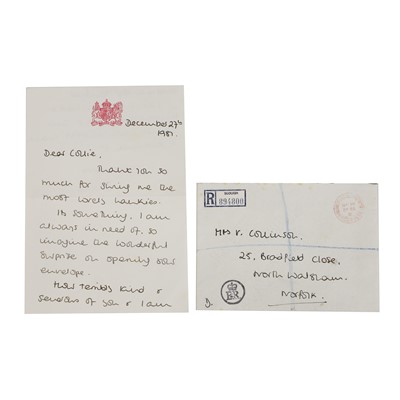 December 27th
1981.
Dear Collie,
Thank you so
much for giving me the
most lovely hankies.
Its something I am
always in need of, so
imagine the wonderful
surprise on opening your
envelope.
How terribly kind &
generous of you & I am
R
894800
Mrs V. Collinson,
25, Bradfield Close,
North Walsham,
Norfolk.
D.
E II R